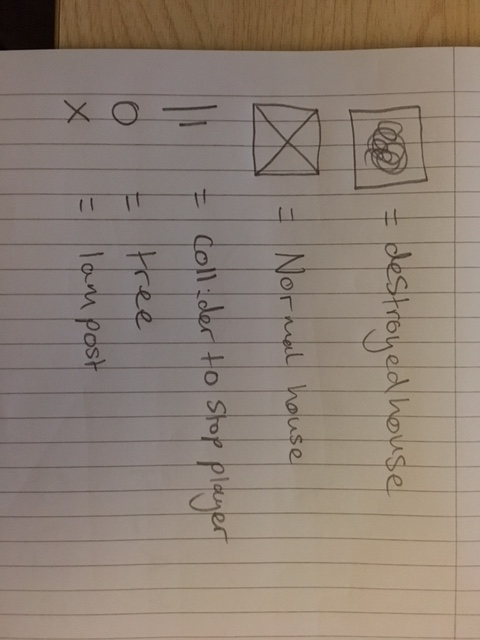 = destroyed house
= Normal house
= Collider to stop player
O = tree
X = lampost